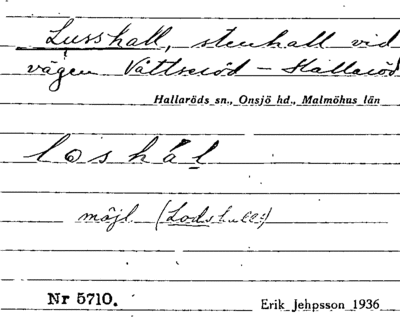 Lusshall, stenhall vid
vägen Vättseröd – Hallaröd
Hallaröds sn., Onsjö hd., Malmöhus län
loshál
möjl. (Lodshall?)
Nr 5710.
Erik Jehpsson 1936